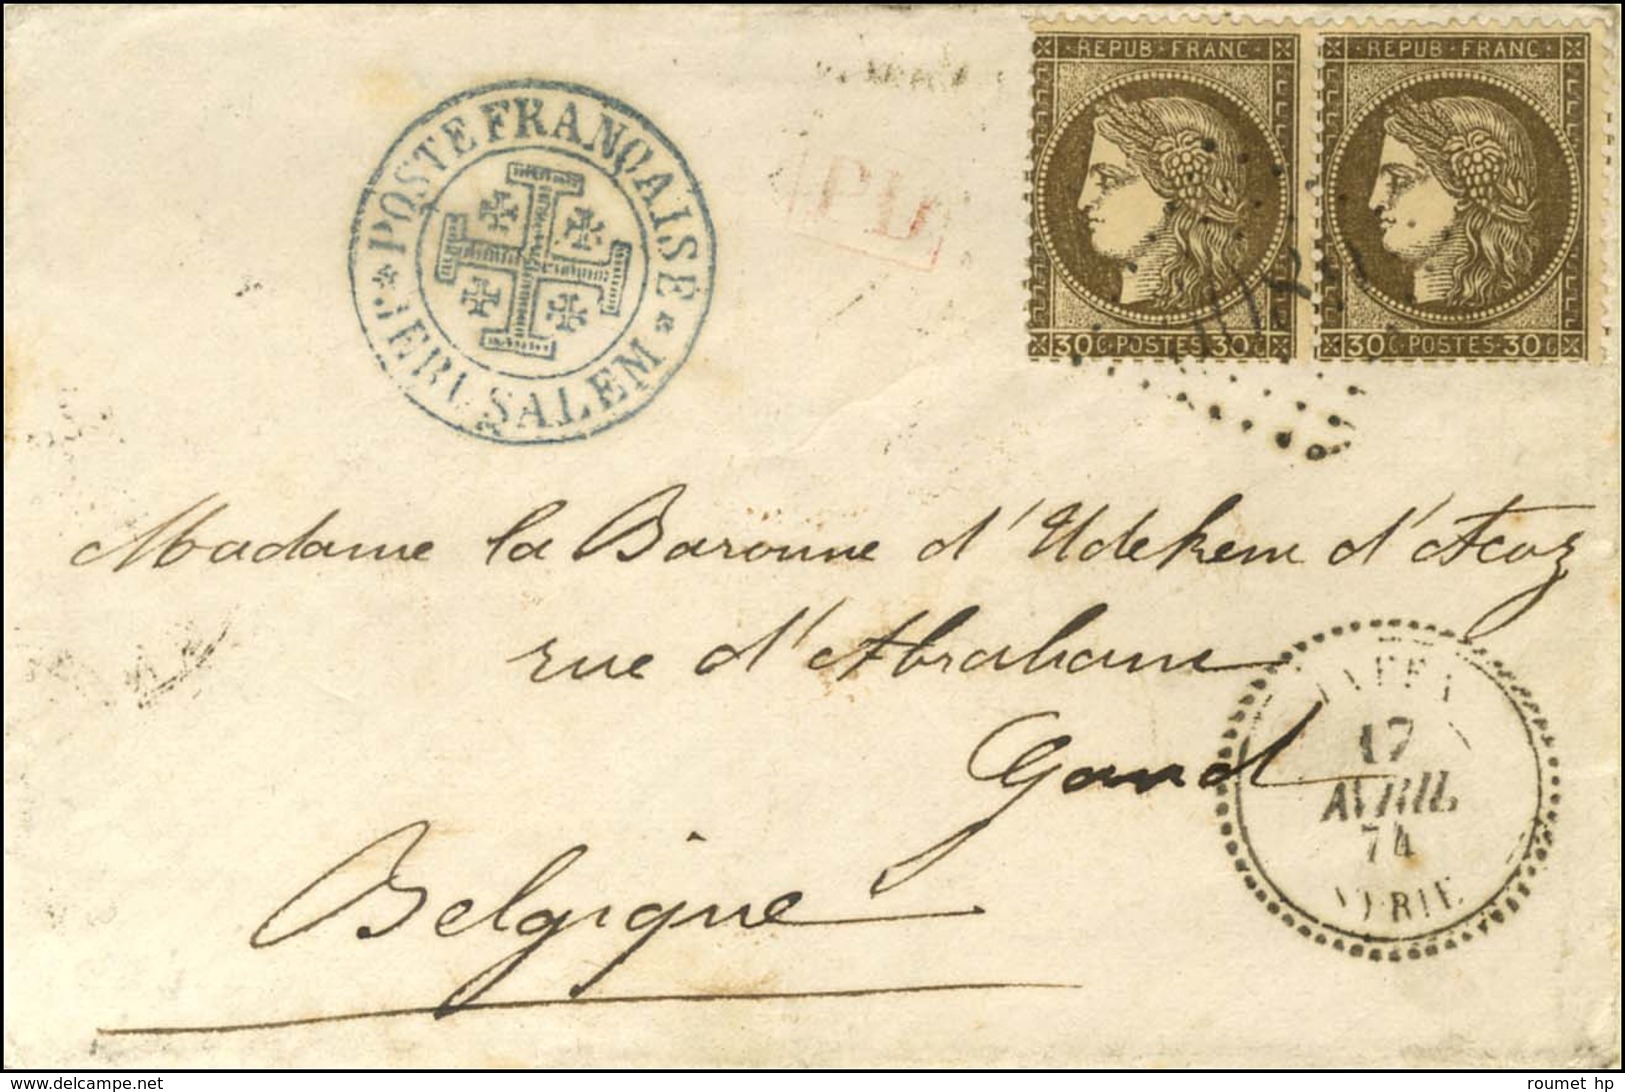 POSTE FRANÇAISE
* JERUSALEM *
PD
REPUB FRANC
30 C POSTES 30 C
REPUB FRANC
30 C POSTES 30 C
Madame la Baronne d'Udekem d'Acoz
rue d'Abraham
Gand
Belgique
JAFFA
17
AVRIL
74
SYRIE
www.delcampe.net
roumet hp